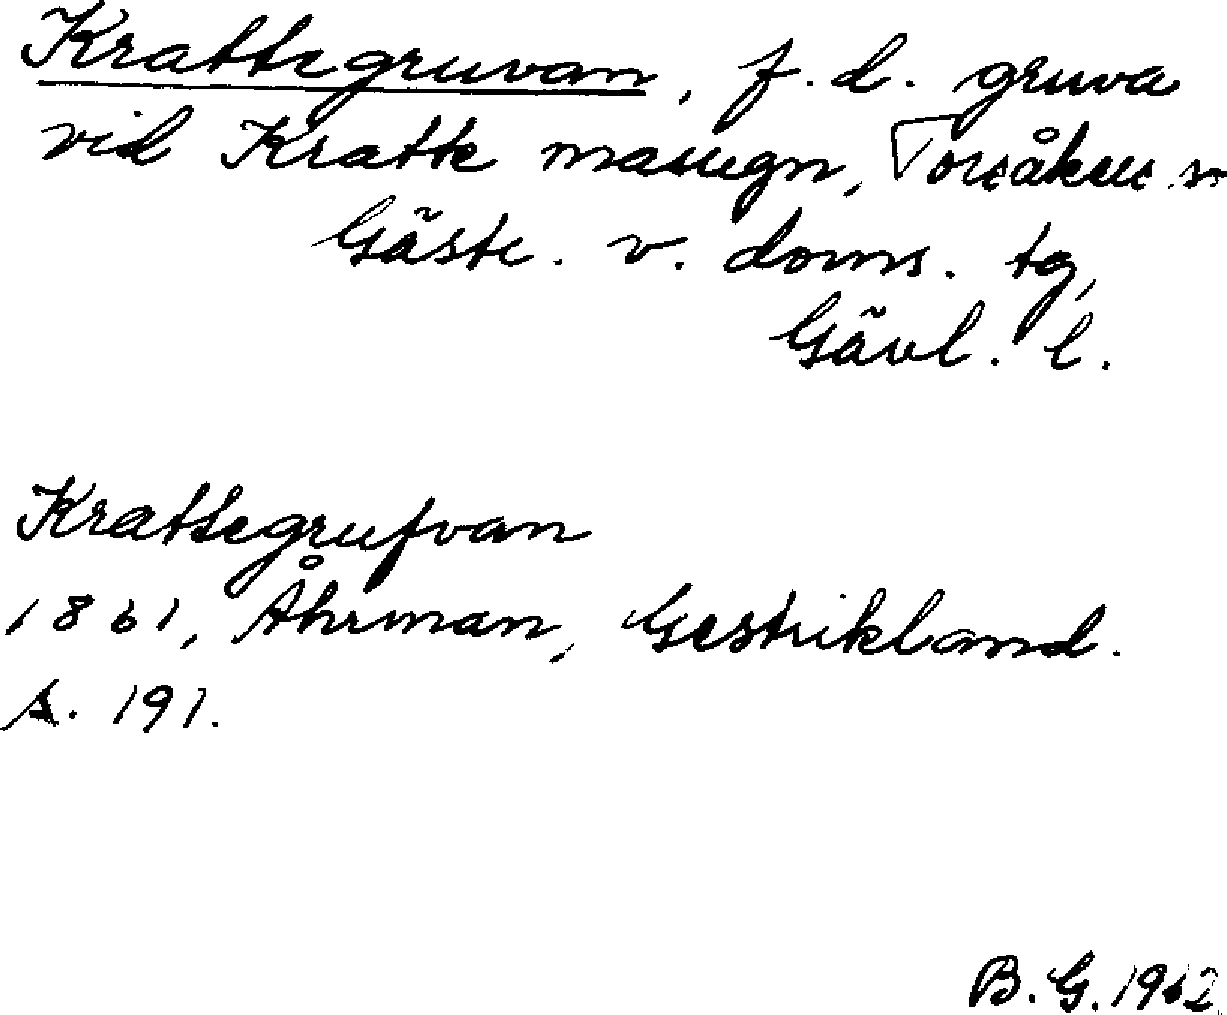 Krattegruvan, f. d. gruva
vid Kratte masugn, Torsåkers sn
Gästr. v. doms. tg,
Gävl. l.
Krattegrufvan
1861, Åhrman, Gestrikland.
s. 191.
B. G. 1962